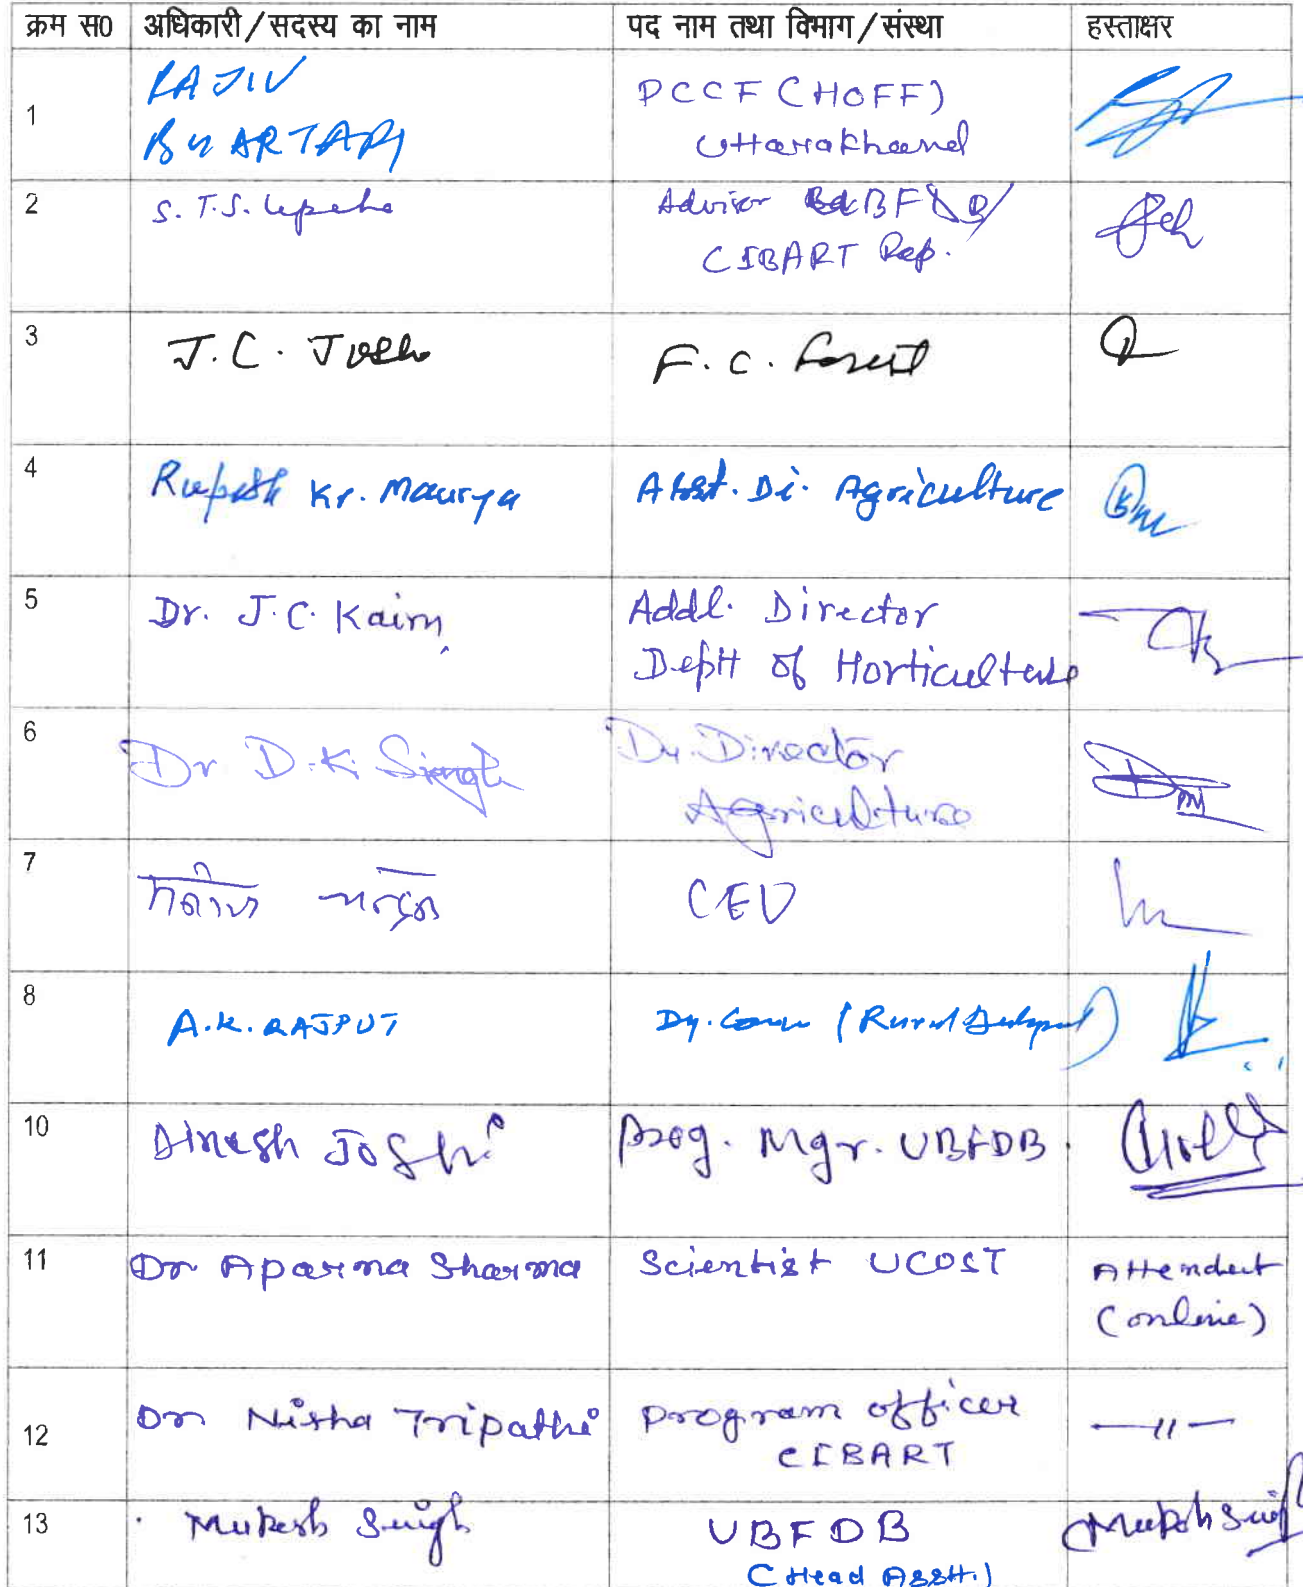 क्रम स0 अधिकारी/सदस्य का नाम पद नाम तथा विभाग/संस्था हस्ताक्षर
1 RAJIV PCCF (HOFF)
BHARTARI Uttarakhand
2 S.T.S. Lepcha Advisor BFDB/
CIBART Rep.
3 J.C. Joshi F.C. Forest
4 Rupesh Kr. Maurya Asst. Di. Agriculture
5 Dr. J.C. Kaim Addl. Director
Deptt of Horticulture
6 Dr D.K. Singh Dy. Director
Agriculture
7 मनोज चन्द्रन CEO
8 A.K. RAJPUT Dy. Comm (Rural
10 Dinesh Joshi Prog. Mgr. UBFDB.
11 Dr Aparna Sharma Scientist UCOST Attendent
(online)
12 Dr Nisha Tripathi Program officer —〃—
CIBART
13 Mukesh Singh UBFDB Mukesh Singh
(Head Asstt.)